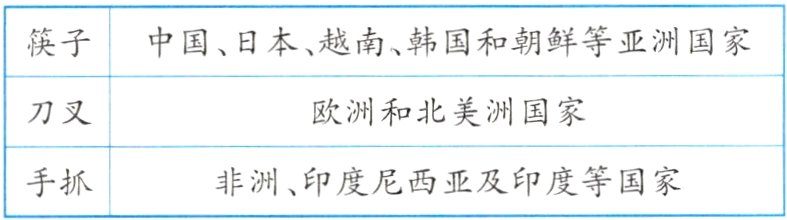 筷子 中国、日本、越南、韩国和朝鲜等亚洲国家
刀叉 欧洲和北美洲国家
手抓 非洲、印度尼西亚及印度等国家